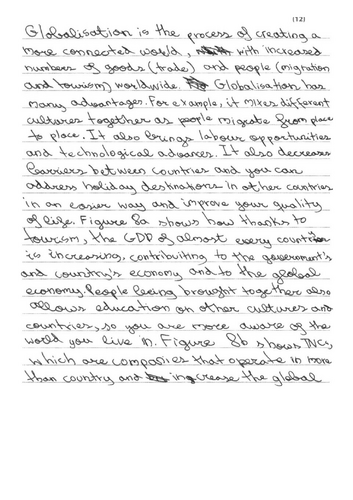 (12)
Globalisation is the process of creating a
more connected world, with increased
numbers of goods (trade) and people (migration
and tourism) worldwide. Globalisation has
many advantages. For example, it mixes different
cultures together as people migrate from place
to place. It also brings labour opportunities
and technological advances. It also decreases
barriers between countries and you can
address holiday destinations in other countries
in an easier way and improve your quality
of life. Figure 8a shows how thanks to
tourism, the GDP of almost every country
is increasing, contributing to the government's
and country's economy and to the global
economy. People being brought together also
allows education on other cultures and
countries, so you are more aware of the
world you live in. Figure 8b shows TNCs,
which are companies that operate in more
than country and increase the global